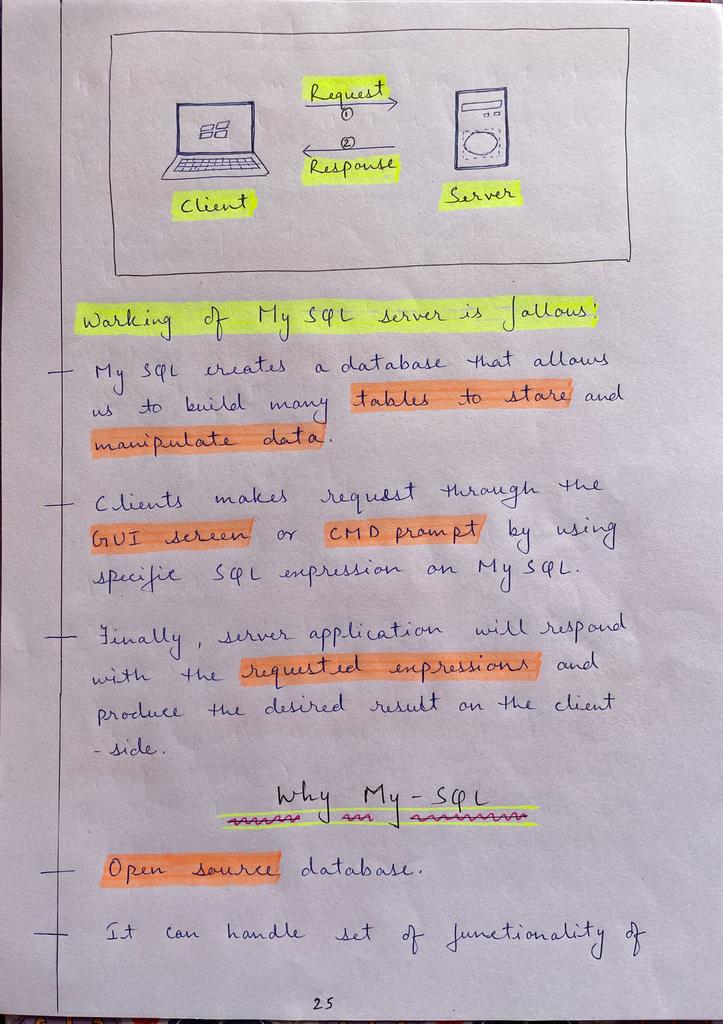 Request
①
②
Response
Client
Server
Working of My SQL server is follows:
My SQL creates a database that allows
us to build many tables to store and
manipulate data.
Clients makes request through the
GUI screen or CMD prompt by using
specific SQL expression on My SQL.
Finally, server application will respond
with the requested expressions and
produce the desired result on the client
-side.
Why My-SQL
Open source database.
It can handle set of functionality of
25